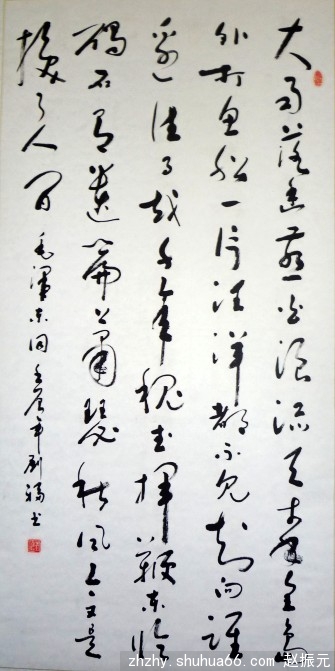 大雨落幽燕白浪滔天秦皇岛
外打鱼船一片汪洋都不见知向谁
边往事越千年魏武挥鞭东临
碣石有遗篇萧瑟秋风今又是
换了人间 毛泽东词 壬辰年刘 书
zhzhy.shuhua66.com 赵振元